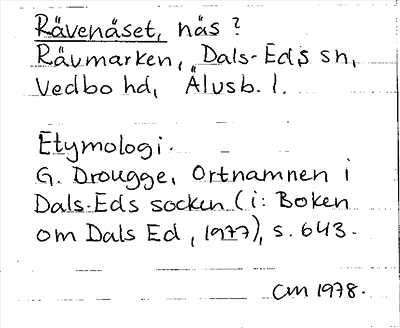 Rävenäset, näs?
Rävmarken, Dals-Eds sn,
Vedbo hd, Älvsb. l.
Etymologi.
G. Drougge, Ortnamnen i
Dals-Eds socken (i: Boken
om Dals Ed, 1977), s. 643.
CM 1978.